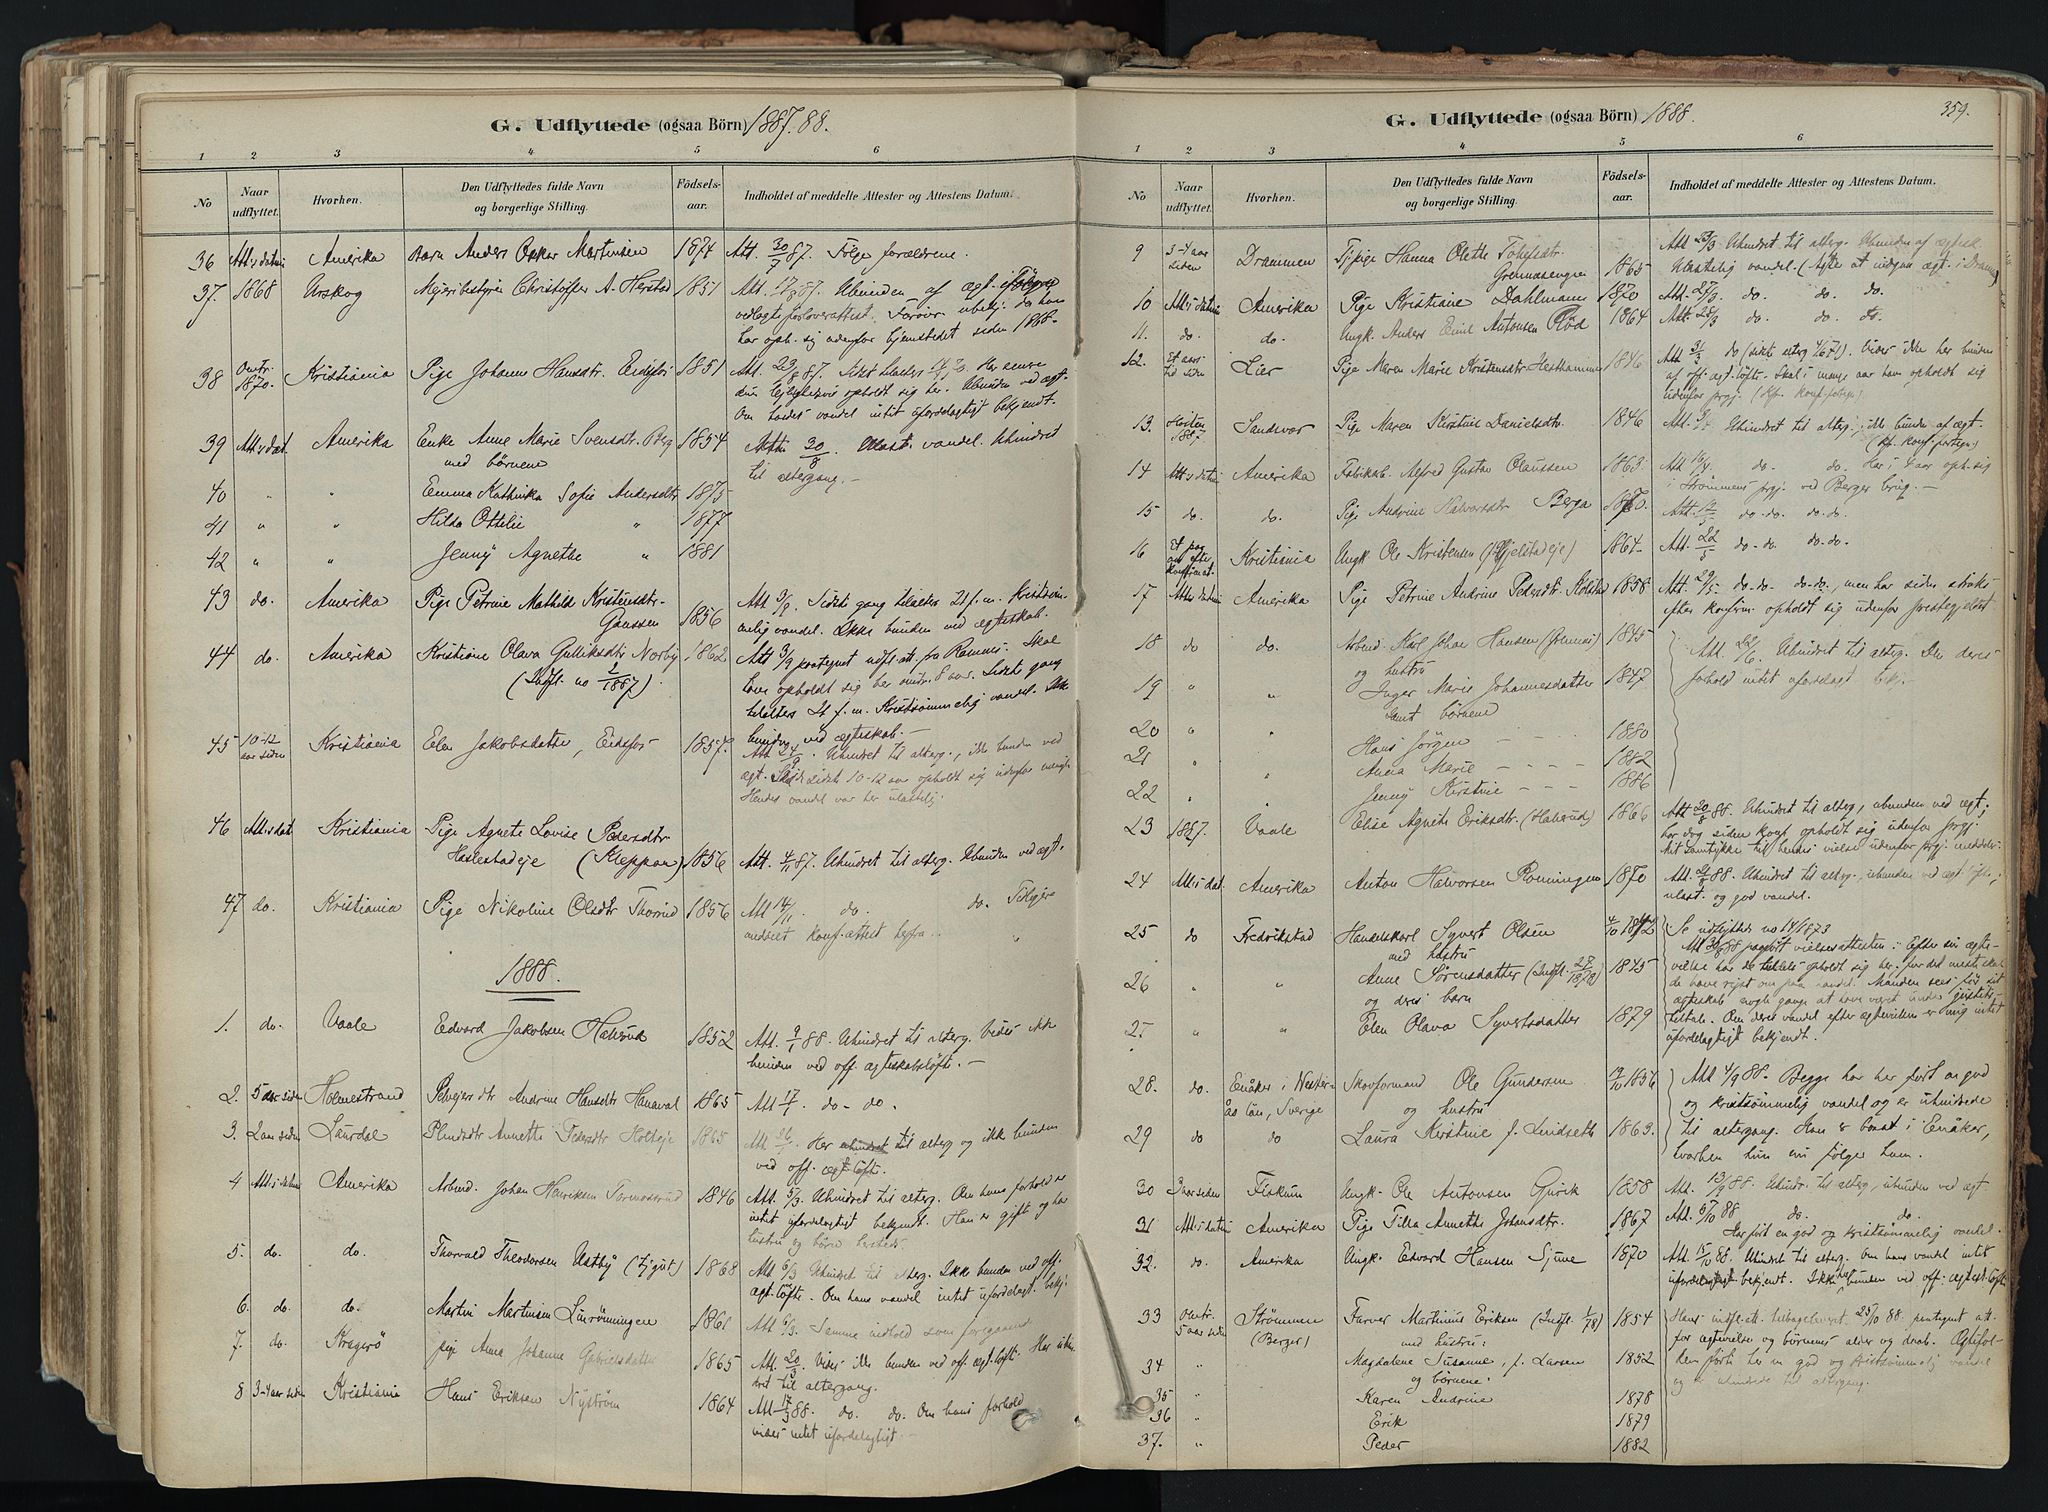 G. Udflyttede (ogsaa Börn) 1887.88.
1 2 3 4 5 6
No Naar udflyttet. Hvorhen. Den Udflyttedes fulde Navn og borgerlige Stilling. Födsels-aar. Indholdet af meddelte Attester og Attestens Datum.
36 Att's datum Amerika Barn Anders Oskar Martinsen 1874 Att. 30/7 87. Følge forældrene.
37. 1868 Urskog Meieribestyrer Christoffer A. Herstad 1851 Att. 87. Ubunden af ægt.
vedlagte forloverattest. Forøvr. ubekj. da han
har oph. sig udenfor hjemstedet siden 1868.
38 Omtr. 1870. Kristiania Pige Johanne Hansdtr. Eidsfos 1851 Att. 23/8 87.
opholdt sig her. Ubunden ved ægt.
Om hendes vandel intet ufordelagtigt bekjendt.
39 Att's dat. Amerika Enke Anne Marie Svensdtr. Berg 1854 Attst. 30/8. Ulast. vandel. Uhindret
med børnene til altergang. -
40 " " Emma Kathinka Sofie Andersdtr 1875
41 " " Hilda Ottelie " 1877
42 " " Jenny Agnethe " 1881
43 do. Amerika Pige Petrine Mathild Kristensdtr. Gaassen 1856 Att. 3/9. Sidste gang til alters
vandel. Ikke bunden ved ægteskab.
44 do. Amerika Kristiane Olava Gulliksdtr Norby 1862 Att 3/9 paategnet udfl. att. fra Ramnes. Skal
(Indfl. no 2/1887). have opholdt sig her omtr. 8 aar. Sidste gang
til alters Kristsømmelig vandel. Ikke
bunden ved ægteskab. -
45 10-12 aar siden Kristiania Elen Jakobsdatter, Eidsfos 1857. Att 24/9. Uhindret til alterg., ikke bunden ved
ægt. sidste 10-12 aar opholdt sig udenfor menigh.
Hendes vandel var her ulastelig.
46 Att's dat Kristiania Pige Agnete Lovise Pedersdtr
Haslestadeje (Kleppan) 1856 Att. 4/11 87. Uhindret til alterg. Ubunden ved ægt.
47 do. Kristiania Pige Nikoline Olsdtr Thorrud 1856 Att 14/11. do. do. Tidligere
meddelt konf. attest herfra.
1888.
1. do. Vaale Edvard Jakobsen Hallerud 1852 Att. 9/1 88. Uhindret til alterg. Vides ikke
bunden ved off. ægteskabsløfte. -
2. 5 aar siden Holmestrand Andrine Hansdtr Hanaval 1865 Att 17/1 do - do.
3. 2 aar siden Laurdal Annette Pedersdtr Holteje 1865 Att. Her uhindret til alterg og ikke bunden
ved off. ægt. løfte.
4 Att's datum Amerika Arbeid. Johan Henriksen Tormodsrud 1846 Att. 5/3. Uhindret til alterg. Om hans forhold er
intet ufordelagtigt bekjendt. Han er gift og har
hustru og børn hersteds.
5. do. do. Thorvald Theodorsen Ustby 1868 Att 6/3 Uhindret til alterg. Ikke bunden ved off.
ægt. løfte. Om hans vandel intet ufordelagt. bekj.
6. do. do. Martin Martinsen Linrønningen 1861 Att 6/3. Samme indhold som foregaaende
7. do. Kragerø pige Anna Johanne Gabrielsdatter 1865 Att. 20/3 Vides ikke bunden ved off. ægt. løfte. Har uhind-
ret til altergang.
8 3-4 aar siden Kristiania Hans Eriksen Nyström 1864 Att 17/3 88. do. do. Om hans forhold
vides intet ufordelagtigt. -
G. Udflyttede (ogsaa Börn) 1888. 359.
1 2 3 4 5 6
No Naar udflyttet. Hvorhen. Den Udflyttedes fulde Navn og borgerlige Stilling. Födsels-aar. Indholdet af meddelte Attester og Attestens Datum.
9 3-4 aar siden Drammen Tjpige Hanna Olette Tohfsdtr. 1865 Att 23/3 Uhindret til alterg. Ubunden af ægtesk.
Ulastelig vandel. (Agter at indgaa ægt. i Drammen)
10 Att's datum Amerika Pige Kristiane Dahlmann 1870 Att. 27/3 do. do. do.
11. do. do. Ungk. Anders Emil Antonsen Röd 1864 Att. 28/3 do. do. do.
12. Lier Pige Maren Marie Kristensdtr Hesthammer 1846 Att 31/3 do (sidst alterg 4/6 71). Vides ikke her bunden
af off. ægt. løfte. Skal i mange aar have opholdt sig
udenfor prgj.
13. Høsten 1887 Sandsvær Pige Maren Kirstine Danielsdtr. 1846 Att. Uhindret til alterg., ikke bunden af ægt.
14 Att's datum Amerika Fabrikarb. Alfred Gustav Olaussen 1863. Att 16/4 do. do. Har i 4 aar oph. sig
i Strømmens prgj. ved Berger brug. -
15 do. do. Pige Andrine Halvorsdtr Berga 1870. Att. 12/5 do. do. do. do.
16 Et par aar efter konfirmat. Kristiania Ungk Ole Kristensen (Hjelstadeje) 1864 Att. 22/5 do - do. do. do.
17 Att's datum Amerika Pige Petrine Andrine Pedersdtr Holstad 1858 Att. 29/5 do. do. do. do., men har siden straks
efter konfirm. opholdt sig udenfor prestegjeldet.
18 do do. Arbeid. Karl Johan Hansen 1845 Att. 22/6. Uhindret til alterg. Om deres
og hustru forhold intet ufordelagt bek.
19 " " Inger Marie Johannesdatter 1847
samt børnene
20 " " Hans Jörgen - - - 1880
21 " " Anna Marie - - - - 1882
22 " " Jenny Kirstine - - - 1886
23 1887. Vaale Elise Agnete Eriksdtr. (Hallerud) 1866 Att 20/8 88. Uhindret til alterg, ubunden ved ægt;
har dog siden konf. opholdt sig udenfor prgj.
24 Att's dat. Amerika Anton Halvorsen Rønningen 1870 Att. 88. Uhindret til alterg., ubunden ved ægt. løfte,
ulast. og god vandel.
25 do Fredrikstad Handelskarl Syvert Olsen 4/10 1842 Se udflyttede no 14/1873
med hustru Att 88 paa vielsesattesten: Efter sin ægte-
26 " " Anne Sørensdatter (Indfl. 27/1878) 1845 vielse har de tildels opholdt sig her, for det meste skal
og deres barn de have rejst om paa handel. Manden sees før sit
27 " " Elen Olava Syvertsdatter 1879 ægteskab nogle gange at have været under justits-
tiltale. Om deres vandel efter ægtevielsen er mig intet
ufordelagtigt bekjendt.
28. do. Enåker i Vester- Skovformand Ole Gundersen 12/10 1856 Att 4/9 88. Begge har her ført en god
ås län, Sverige og hustru og kristsømmelig vandel og er uhindrede
29 do do Laura Kirstine f. Lindseth 1863. til altergang. Han er bosat i Enåker,
hvorhen hun nu følger ham.
30 3 aar siden Fiskum Ungk. Ole Antonsen Gurik 1858 Att. 13/9 88. Uhindr. til alterg, ubunden ved ægt
31 Att's datum Amerika Pige Tilla Annette Johansdtr. 1867 Att. 5/10 88 do. do.
Har ført en god og kristsømmelig vandel.
32. do. Amerika Ungk. Edvard Hansen Sjue 1870 Att. 15/10 88. Uhindret til alterg. Om hans vandel intet
ufordelagtigt bekjendt. Ikke bunden ved off. ægtesk. løfte
33 Omtr. 5 aar siden Strømmen (Berger) Farver Martinus Eriksen (Indfl. 1/78) 1854 Hans indfl. att. tilbageleveret 25/10 88 paategnet att.
med hustru: for ægtevielse og børnenes alder og daab. Ægtefol-
34 " Magdalene Susanne, f. Larsen 1852 kene førte her en god og kristsømmelig vandel
og børnene: og er uhindrede til altergang.
35 " Karen Andrine 1878
36 " Erik 1879
37. " Peder 1882